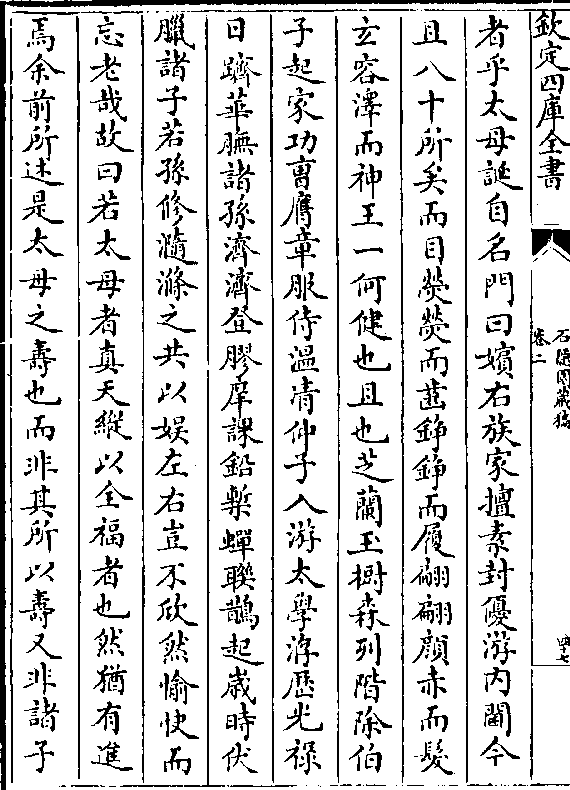 欽定四庫全書
石隱園藏稿
卷二
四十七
者乎太母誕自名門曰嬪右族家擅素封優游内閫今
且八十所矣而目熒熒而齒錚錚而履翩翩顔赤而髪
玄容澤而神王一何健也且也芝蘭玉樹森列階除伯
子起家功曹膺章服侍溫凊仲子入游太學洊歴光禄
日躋華膴諸孫濟濟登膠庠課鉛槧蟬聯鵲起歳時伏
臘諸子若孫修瀡滌之共以娱左右豈不欣然愉快而
忘老哉故曰若太母者真天縱以全福者也然猶有進
焉余前所述是太母之壽也而非其所以壽又非諸子